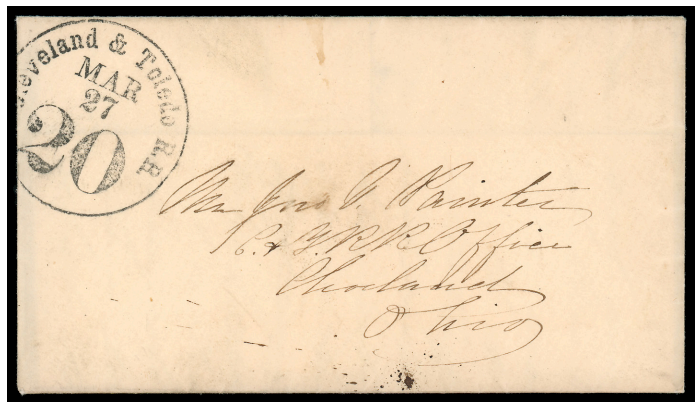 Cleveland & Toledo R.R.
MAR
27
20
Mr Jno. V. Painter
C. & T. R R Office
Cleveland
Ohio